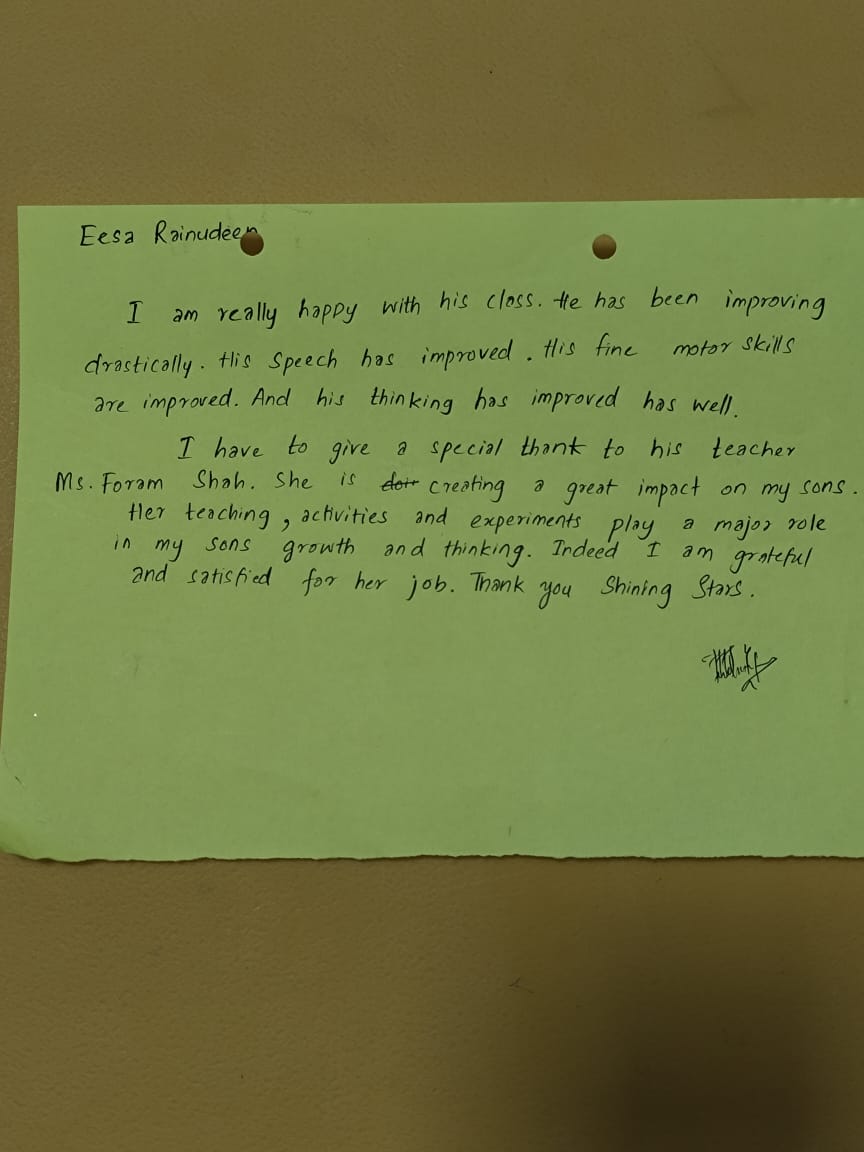 Eesa Rainudeen
I am really happy with his class. He has been improving
drastically. His Speech has improved. His fine motor skills
are improved. And his thinking has improved has well.
I have to give a special thank to his teacher
Ms. Foram Shah. She is creating a great impact on my sons.
Her teaching, activities and experiments play a major role
in my sons growth and thinking. Indeed I am grateful
and satisfied for her job. Thank you Shining Stars.